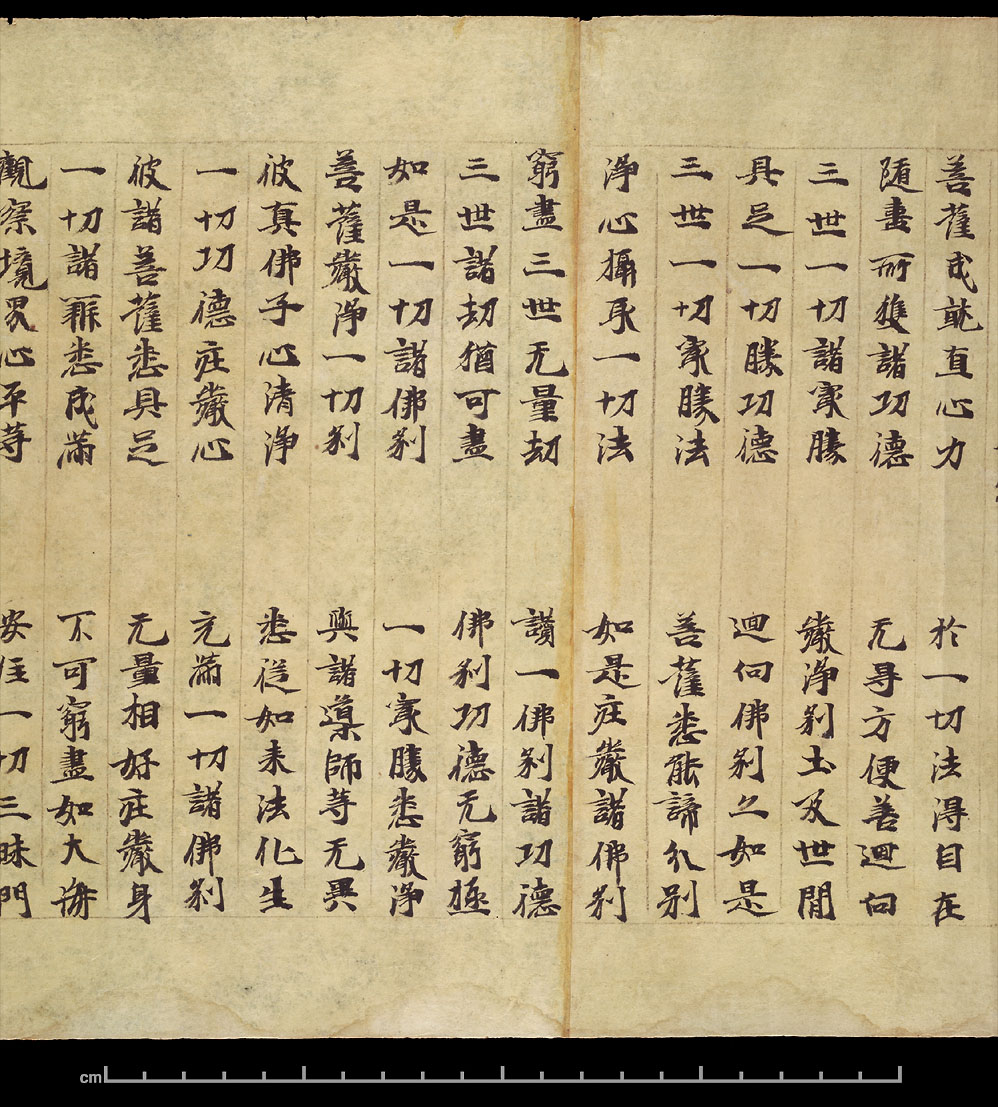 菩薩成就直心力 於一切法得自在
随所獲諸功德 无㝵方便善迴向
三世一切諸㝡勝 嚴淨刹土及世間
具足一切勝功德 迴向佛刹亦如是
三世一切㝡勝法 菩薩悉能諦分別
淨心攝取一切法 如是莊嚴諸佛刹
窮盡三世无量劫 讚一佛刹諸功德
三世諸劫猶可盡 佛刹功德无窮極
如是一切諸佛刹 一切㝡勝悉嚴淨
菩薩嚴淨一切刹 與諸導師等无異
彼真佛子心清淨 悉從如来法化生
一切功德莊嚴心 充滿一切諸佛刹
彼諸菩薩悉具足 无量相好莊嚴身
一切諸辭悉成滿 不可窮盡如大海
觀察境界心平等 安住一切三昧門
cm